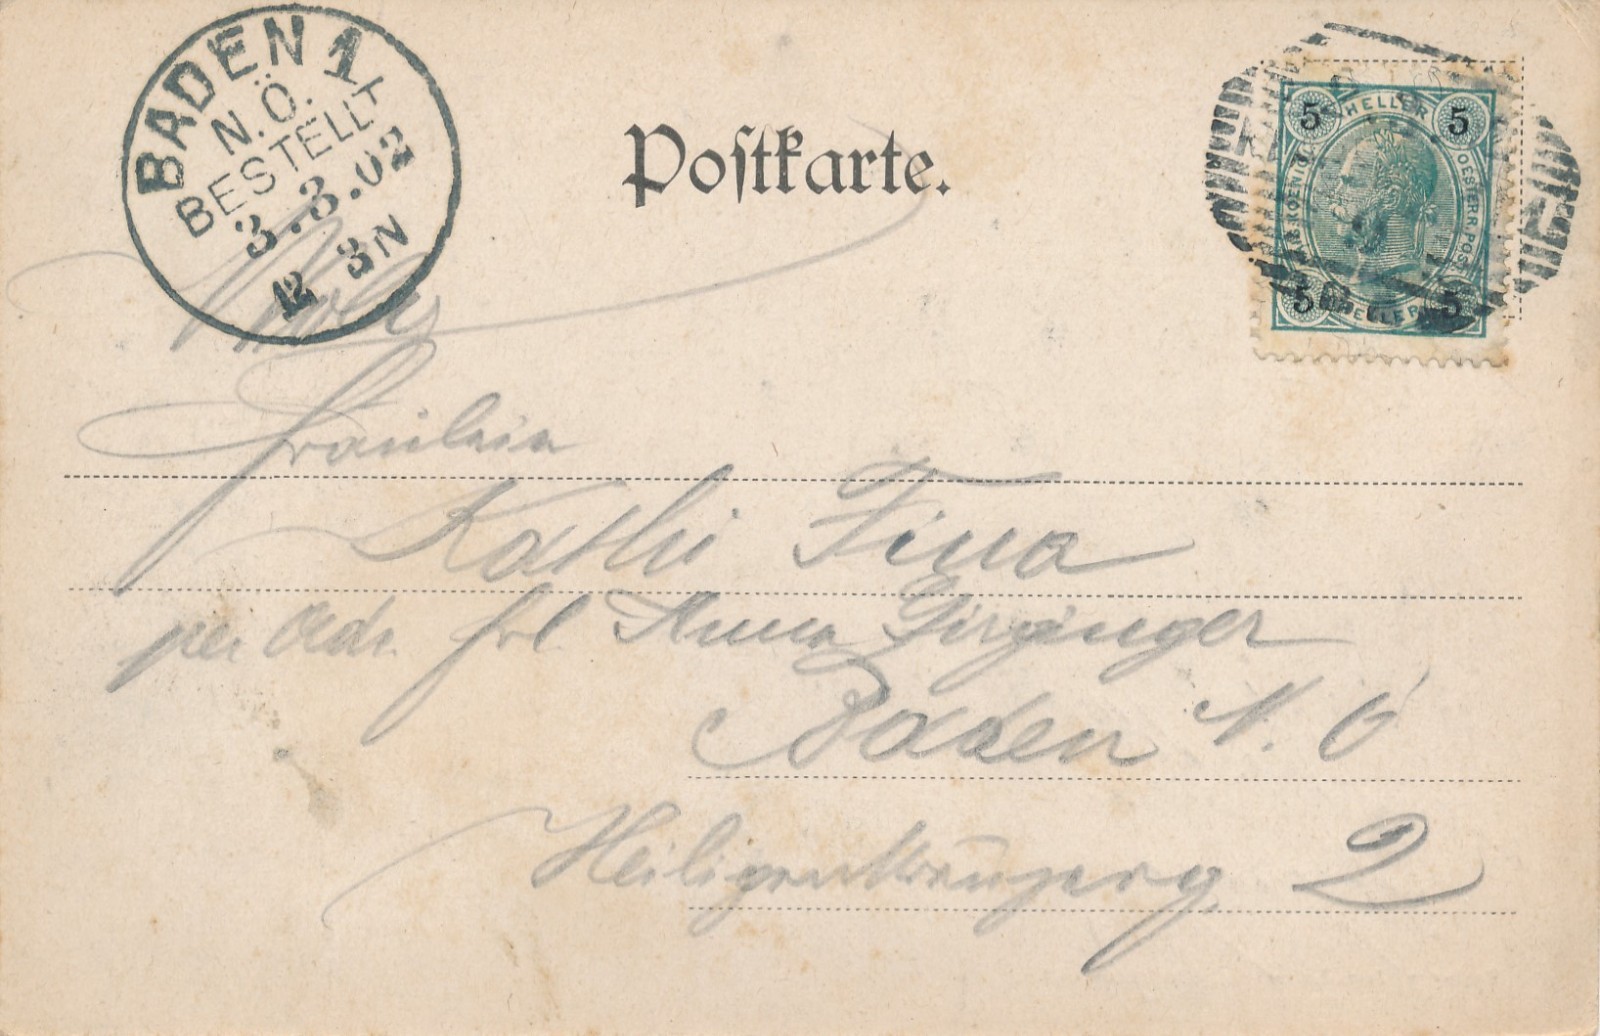 BADEN 1
N.Ö.
BESTELLT
3.3.02
12 3N
Postkarte.
5 HELLER 5
OESTERR. POST.
5 HELLER 5
Wohlg
Fräulein
Kathi Fina
per Adr. Frl Anna
Baden N. Ö
2